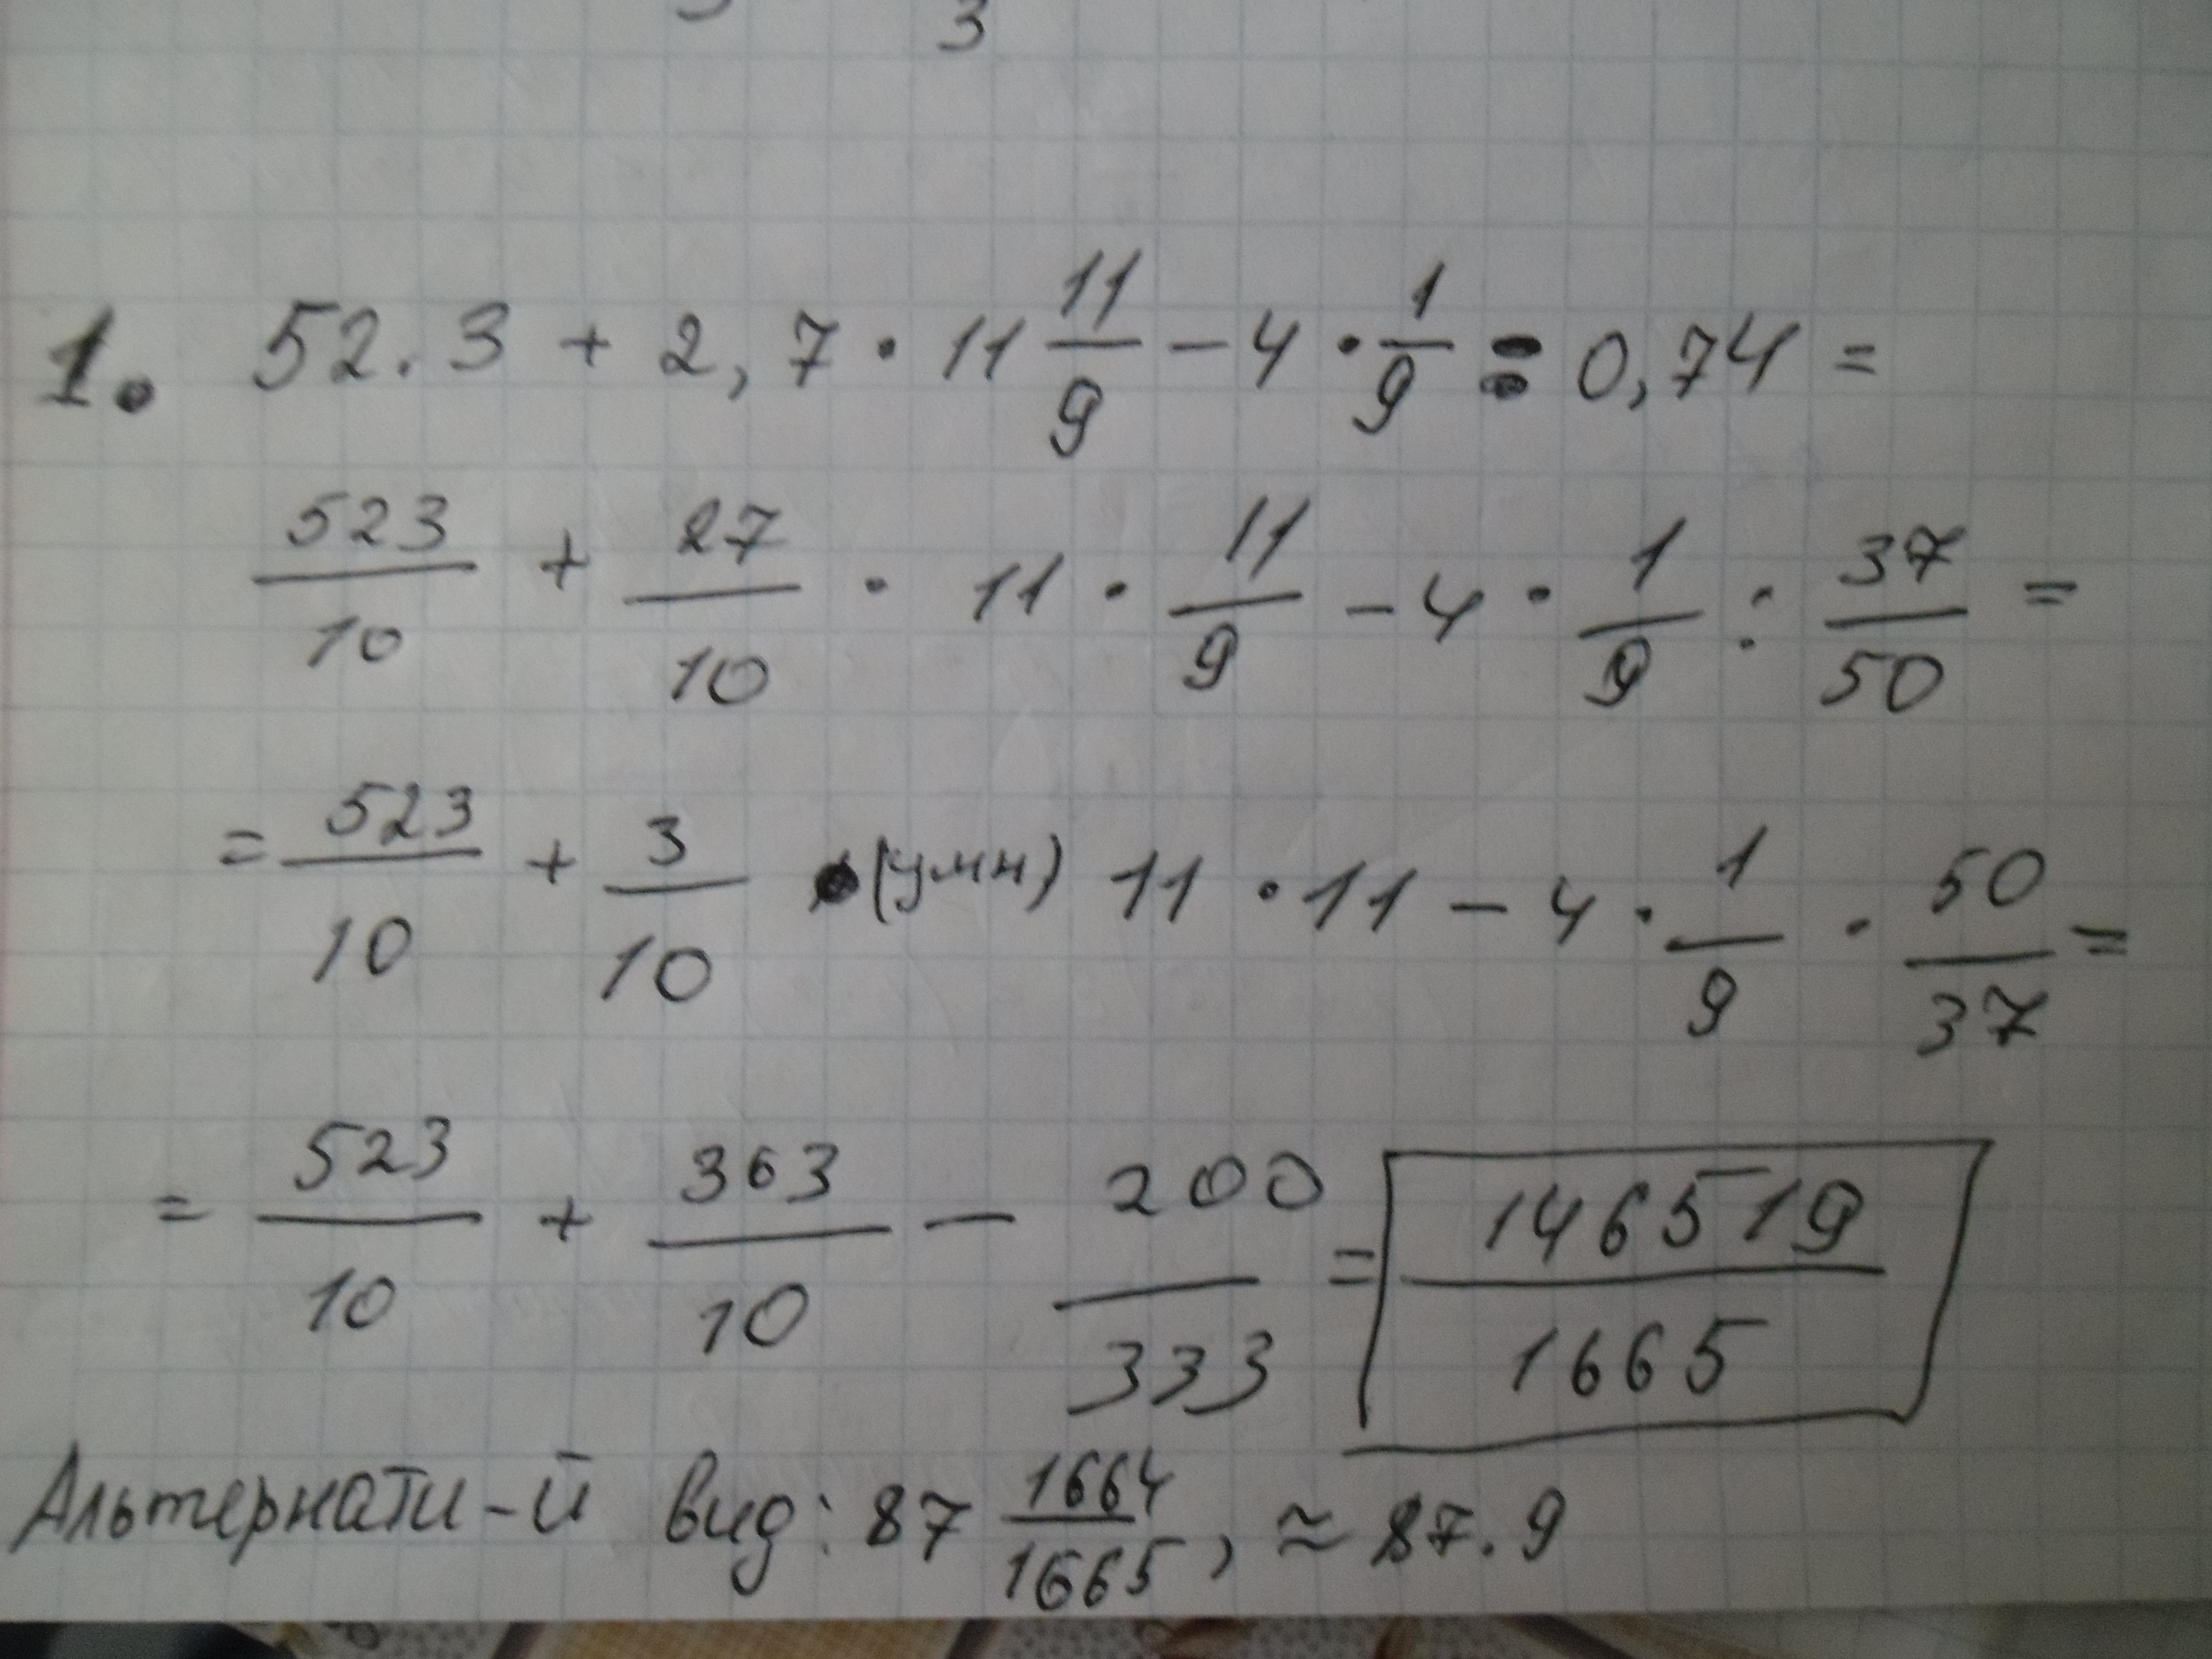 3
1. 52.3 + 2,7 · 11 11/9 - 4 · 1/9 : 0,74 =
523/10 + 27/10 · 11 · 11/9 - 4 · 1/9 : 37/50 =
= 523/10 + 3/10 · (умн) 11 · 11 - 4 · 1/9 · 50/37 =
= 523/10 + 363/10 — 200/333 = 146519/1665
Альтернати-й вид: 87 1664/1665, ≈ 87.9